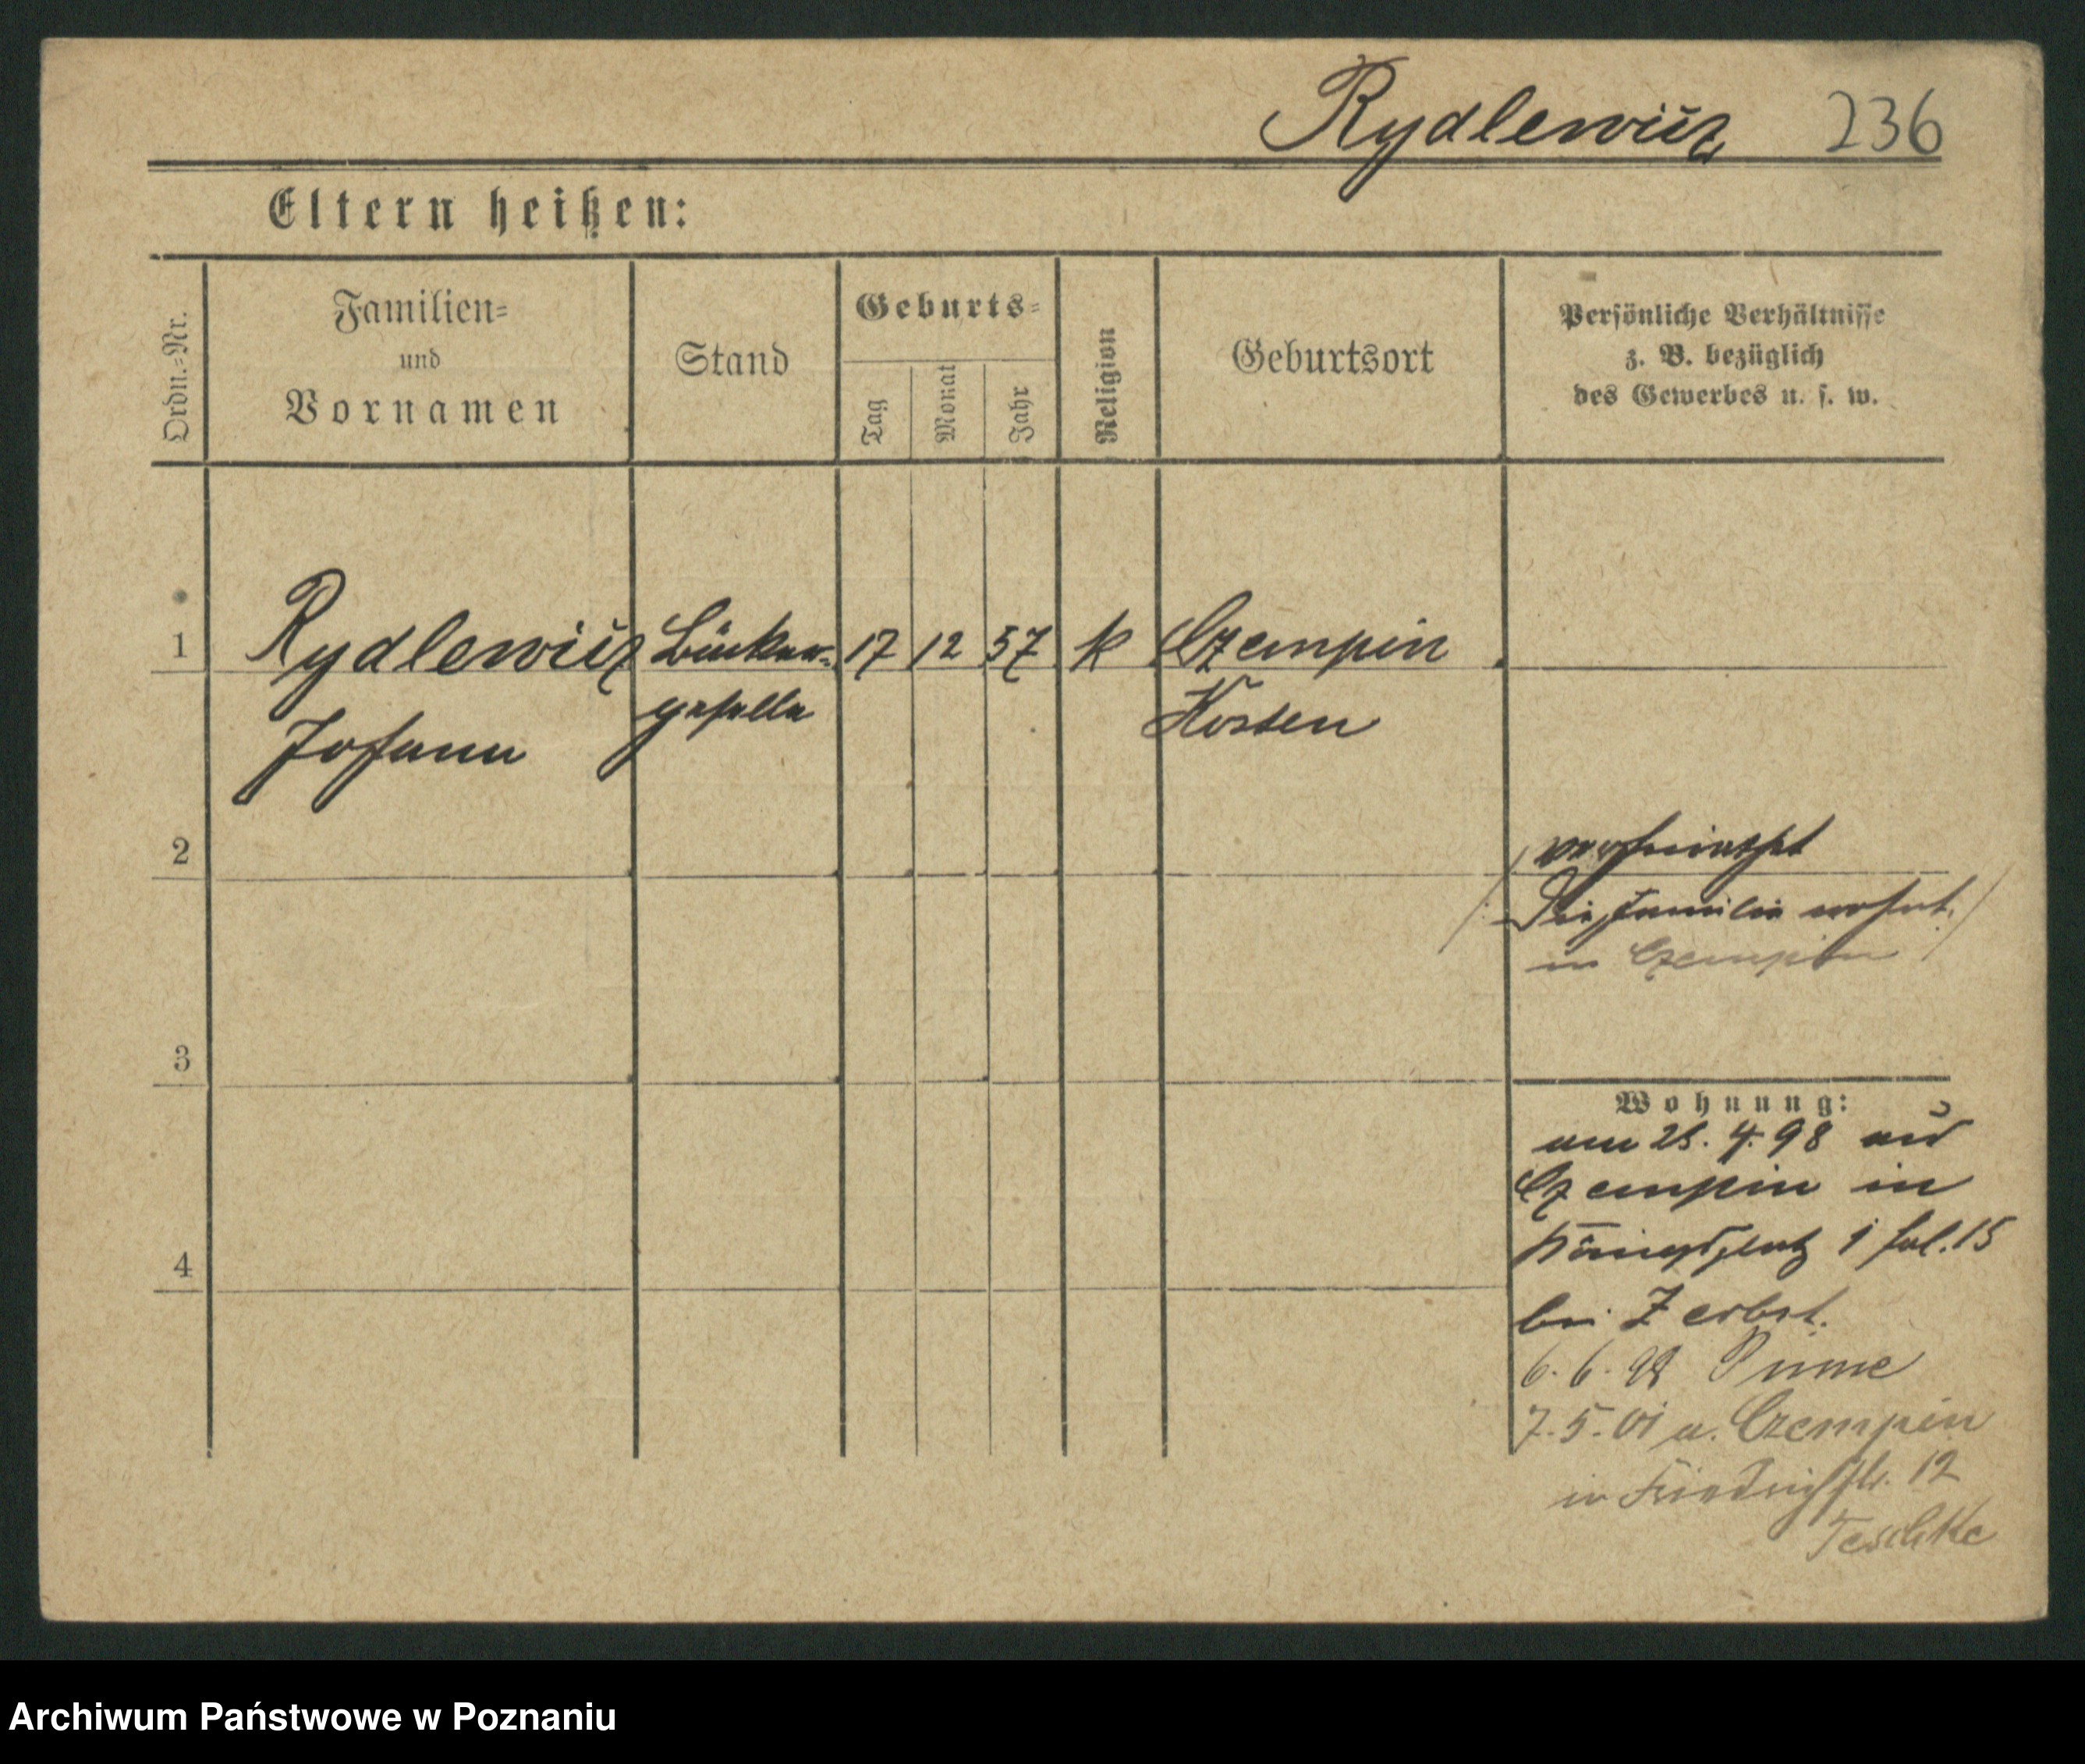 Rydlewicz 236
Eltern heißen:
Ordn.=Nr.
Familien=
und
Vornamen
Stand
Geburts=
Tag
Monat
Jahr
Religion
Geburtsort
Persönliche Verhältnisse
z. B. bezüglich
des Gewerbes u. s. w.
1 Rydlewicz Bäcker= 17 12 57 k Czempin
Johann geselle Kosten
2
verheirathet
Die Familie wohnt
in Czempin
3
Wohnung:
am 25. 4. 98 aus
Czempin in
4
Königsplatz 1 fol. 15
bei Zerbst.
6. 6. 98 Pinne
7. 5. 01 a. Czempin
in Friedrichstr. 12
Teschke
Archiwum Państwowe w Poznaniu